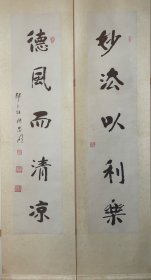 妙法以利樂
德風而清涼